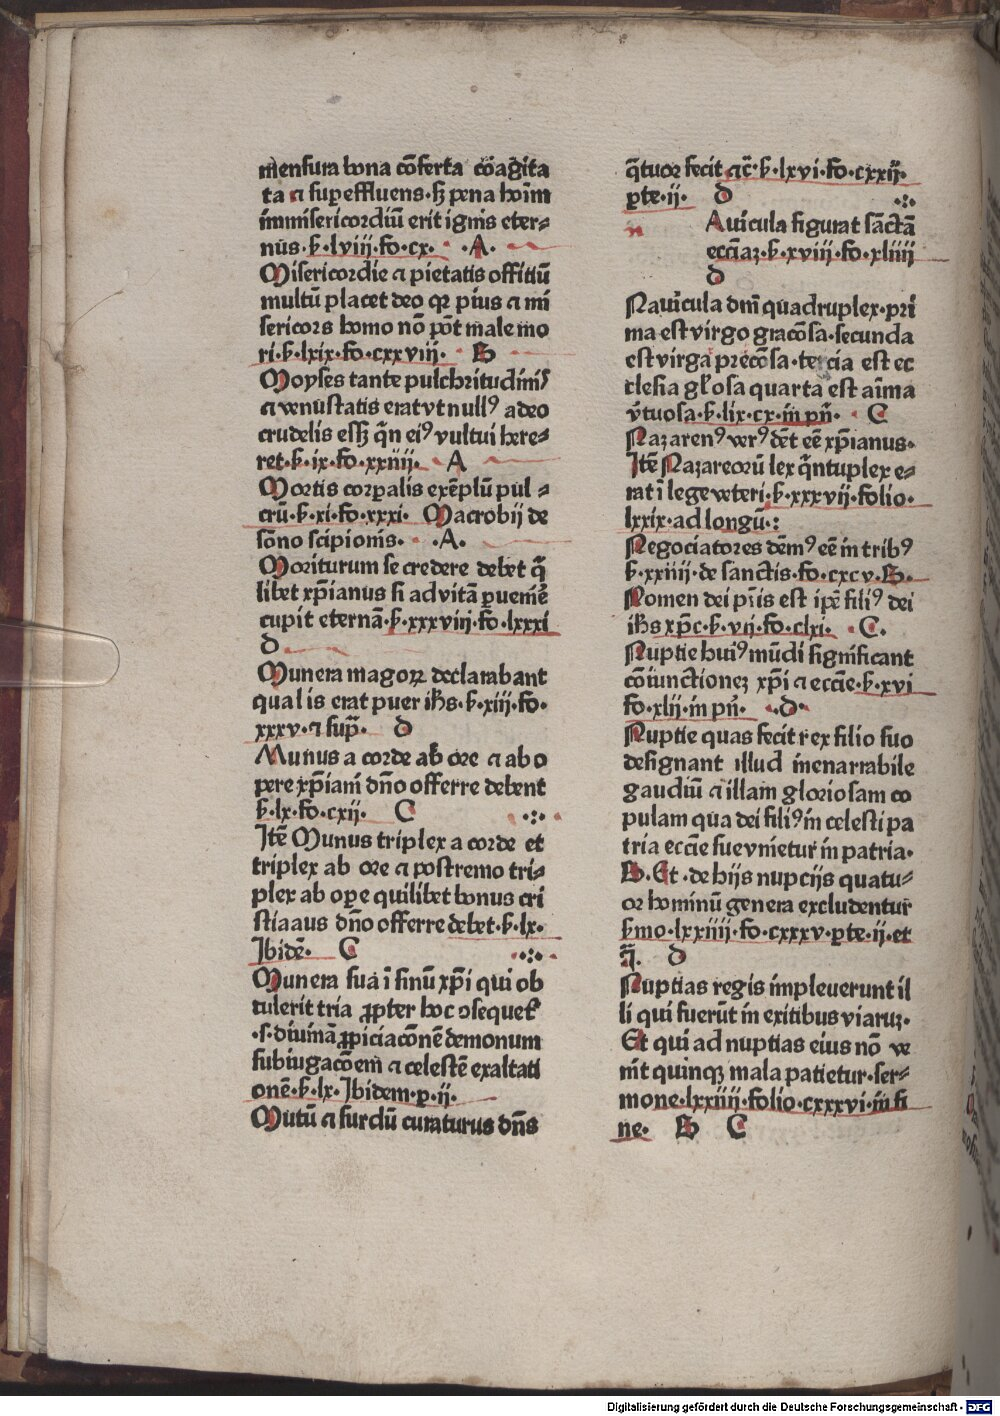 mensura bona cōferta cōagita
ta ⁊ sup effluens·sʒ pena hoīm
immisericordiū erit ignis eter⸗
nus·ẜ·lviij·fo·cx· ·A·
Misericordie ⁊ pietatis offitiū
multū placet deo qꝛ pius ⁊ mi
sericors homo nō pōt male mo
ri·ẜ·lxix·fo·cxxviij· B
Moyses tante pulchritudinis
⁊ venustatis erat vt nullꝰ adeo
crudelis eēt q̄n eiꝰ vultui here⸗
ret·ẜ·ix·fo·xxiiij· A
Mortis corꝑalis exēplū pul⸗
crū·ẜ·xi·fo·xxxi· Macrobij de
sōno scipionis· ·A·
Moriturum se credere debet q̄
libet xp̄ianus si ad vitā ꝑuenīe
cupit eternā·ẜ·xxxviij·fo·lxxxi
D
Munera magoꝝ declarabant
qualis erat puer ihs·ẜ·xiij·fo·
xxxv·⁊ supͣ· D
Munus a corde ab ore ⁊ ab o
pere xp̄iani dn̄o offerre debent
ẜ·lx·fo·cxij· C
Itē Munus triplex a corde et
triplex ab ore ⁊ postremo tri⸗
plex ab oꝑe quilibet bonus cri
stiaaus dn̄o offerre debet·ẜ·lx·
Ibidē· C
Munera sua ī sinū xp̄i qui ob
tulerit tria ꝓpter hoc ↄsequet᷑
·s·diuinā ꝓpiciacōnē demonum
subiugacōem ⁊ celestē exaltati
onē·ẜ·lx·Ibidem·p·ij·
Mutū ⁊ surdū curaturus dn̄s
q̄tuor fecit ⁊c̄·ẜ·lxvi·fo·cxxij·
ꝑte·ij· D
Auicula figurat sāctā
ecciaꝫ·ẜ·xviij·fo·xliiij
D
Nauicula dn̄i quadruplex·pri
ma est virgo gracōsa·secunda
est virga precōsa·tercia est ec
clesia gl̄osa quarta est aīma
v̄tuosa·ẜ·lix·cx·in pn̄· C
Nazarenꝰ verꝰ dēt eē xp̄ianus·
Itē Nazareorū lex q̄ntuplex e⸗
rat ī lege veteri·ẜ·xxxvij·folio·
lxxix·ad longū·:
Negociatores dēmꝰ eē in tribꝰ
ẜ·xxiiij·de sanctis·fo·cxcv·B·
Nomen dei pr̄is est ipē filiꝰ dei
ihs xp̄c·ẜ·vij·fo·clxi· ·C·
Nuptie huiꝰ mūdi significant
cōiunctioneꝫ xp̄i ⁊ eccie·ẜ·xvi
fo·xlij·in pn̄· ·D·
Nuptie quas fecit rex filio suo
designant illud inenarrabile
gaudiū ⁊ illam gloriosam co
pulam qua dei filiꝰ in celesti pa
tria eccie sue vnietur in patria·
B·Et·de hijs nupcijs quatu⸗
or hominū genera excludentur
ẜmo·lxxiiij·fo·cxxxv·ꝑte·ij·et
D
Nuptias regis impleuerunt il
li qui fuerūt in exitibus viaruꝫ·
Et qui ad nuptias eius nō ve
nīt quinqꝫ mala patietur·ser⸗
mone·lxxiiij·folio·cxxxvi·in fi
ne· B C
Digitalisierung gefördert durch die Deutsche Forschungsgemeinschaft · DFG